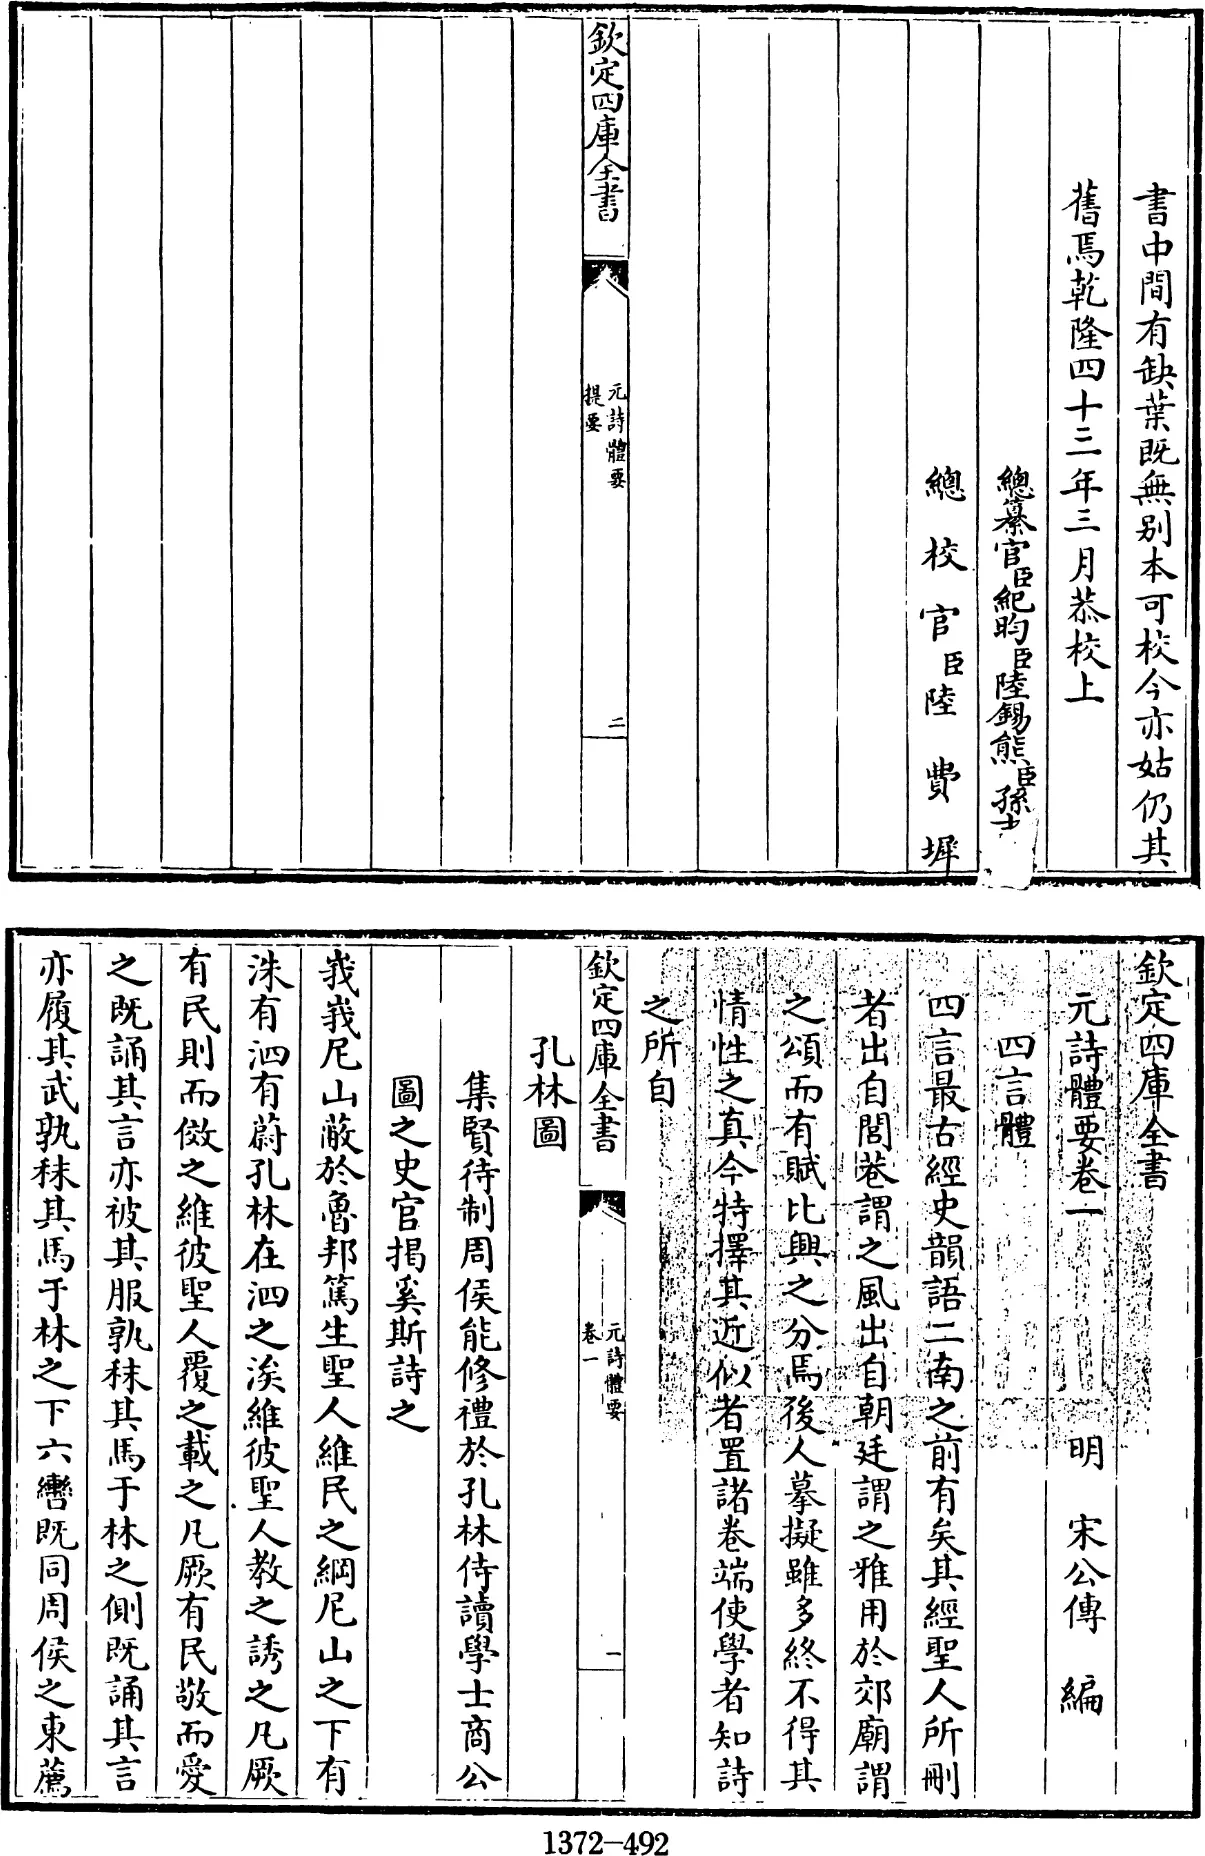 書中間有缺葉既無别本可校今亦姑仍其
舊焉乾隆四十三年三月恭校上
總纂官臣紀昀臣陸錫熊臣孫士
總校官臣陸費墀
欽定四庫全書
元詩體要
提要
二
欽定四庫全書
元詩體要卷一
明 宋公傳 編
四言體
四言最古經史韻語二南之前有矣其經聖人所刪
者出自閭巷謂之風出自朝廷謂之雅用於郊廟謂
之頌而有賦比興之分焉後人摹擬雖多終不得其
情性之真今特擇其近似者置諸卷端使學者知詩
之所自
欽定四庫全書
元詩體要
卷一
一
孔林圖
集賢待制周侯能修禮於孔林侍讀學士商公
圖之史官揭奚斯詩之
峩峩尼山蔽於魯邦篤生聖人維民之綱尼山之下有
洙有泗有蔚孔林在泗之涘維彼聖人教之誘之凡厥
有民則而傚之維彼聖人覆之載之凡厥有民敬而愛
之既誦其言亦被其服孰秣其馬于林之側既誦其言
亦履其武孰秣其馬于林之下六轡既同周侯之東薦
1372-492